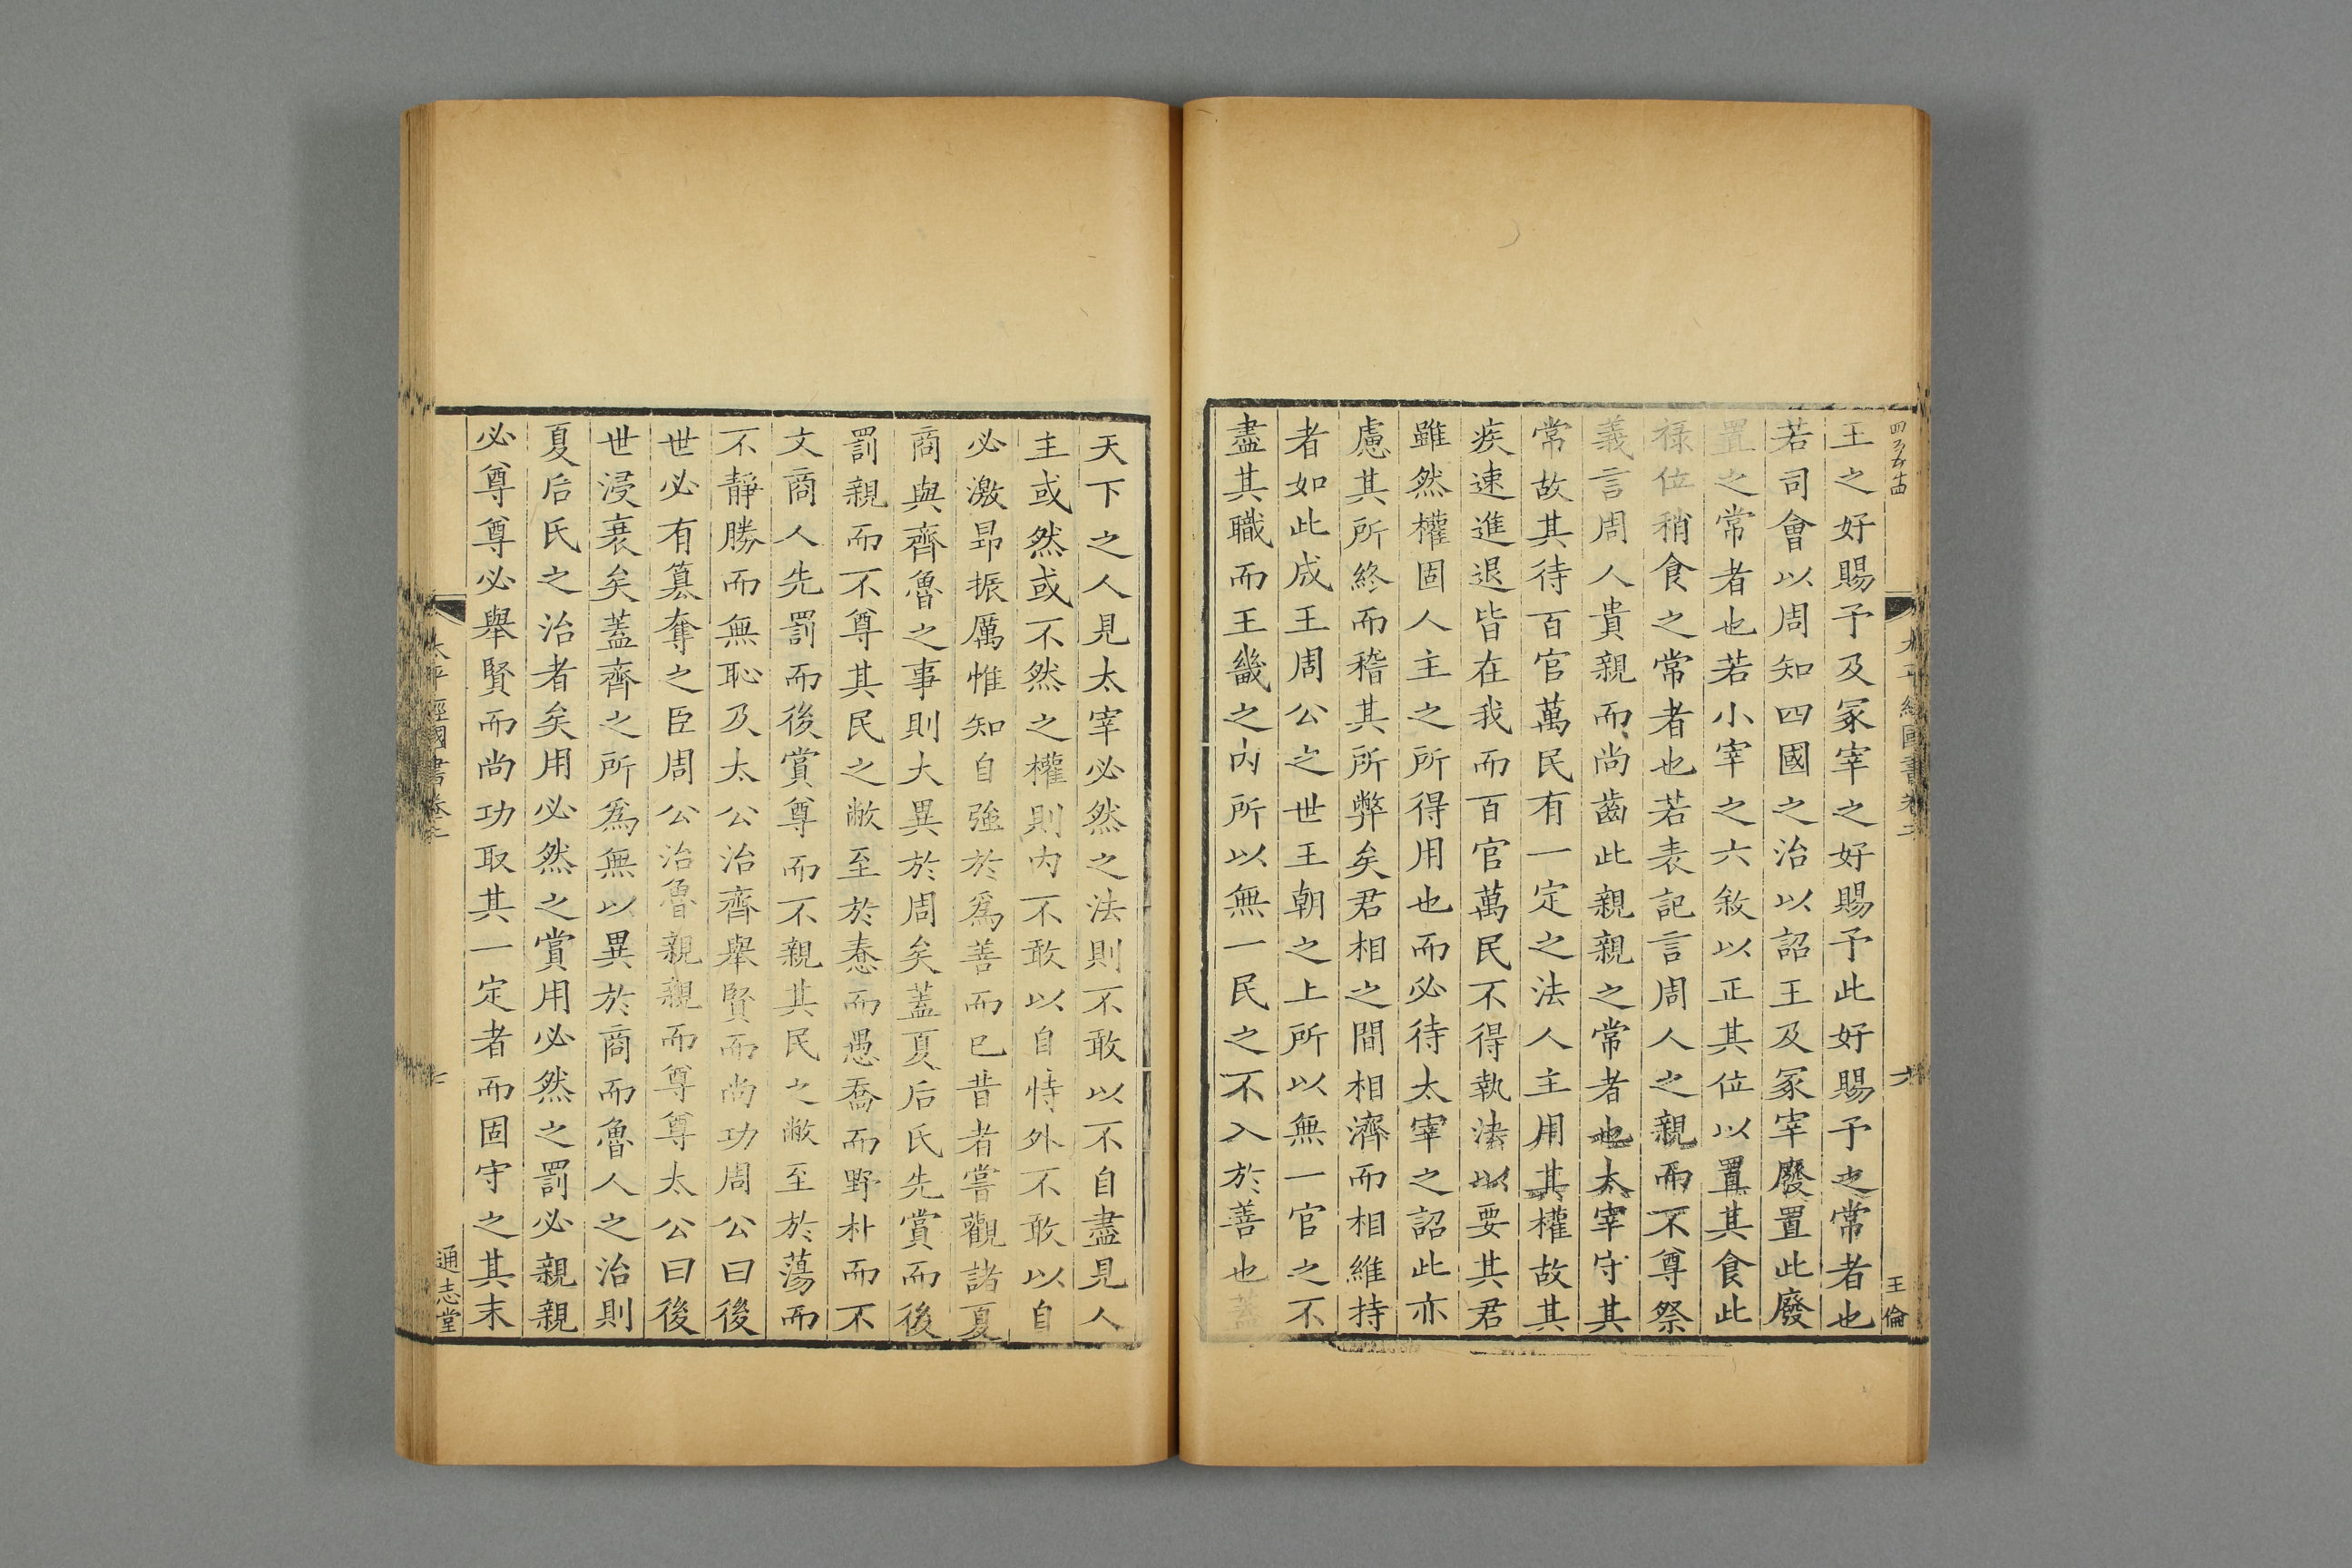 王之好賜予及冢宰之好賜予此好賜予之常者也
若司會以周知四國之治以詔王及冢宰廢置此廢
置之常者也若小宰之六敘以正其位以置其食此
祿位稍食之常者也若表記言周人之親而不尊祭
義言周人貴親而尚齒此親親之常者也太宰守其
常故其待百官萬民有一定之法人主用其權故其
疾速進退皆在我而百官萬民不得執法以要其君
雖然權固人主之所得用也而必待太宰之詔此亦
慮其所終而稽其所弊矣君相之間相濟而相維持
者如此成王周公之世王朝之上所以無一官之不
盡其職而王畿之內所以無一民之不入於善也蓋
王倫
天下之人見太宰必然之法則不敢以不自盡見人
主或然或不然之權則內不敢以自恃外不敢以自
必激昂振厲惟知自強於爲善而已昔者嘗觀諸夏
商與齊魯之事則大異於周矣蓋夏后氏先賞而後
罰親而不尊其民之敝至於惷而愚喬而野朴而不
文商人先罰而後賞尊而不親其民之敝至於蕩而
不靜勝而無恥及太公治齊舉賢而尚功周公曰後
世必有篡奪之臣周公治魯親親而尊尊太公曰後
世浸衰矣蓋齊之所爲無以異於商而魯人之治則
夏后氏之治者矣用必然之賞用必然之罰必親親
必尊尊必舉賢而尚功取其一定者而固守之其末
太平經國書卷二
七
通志堂